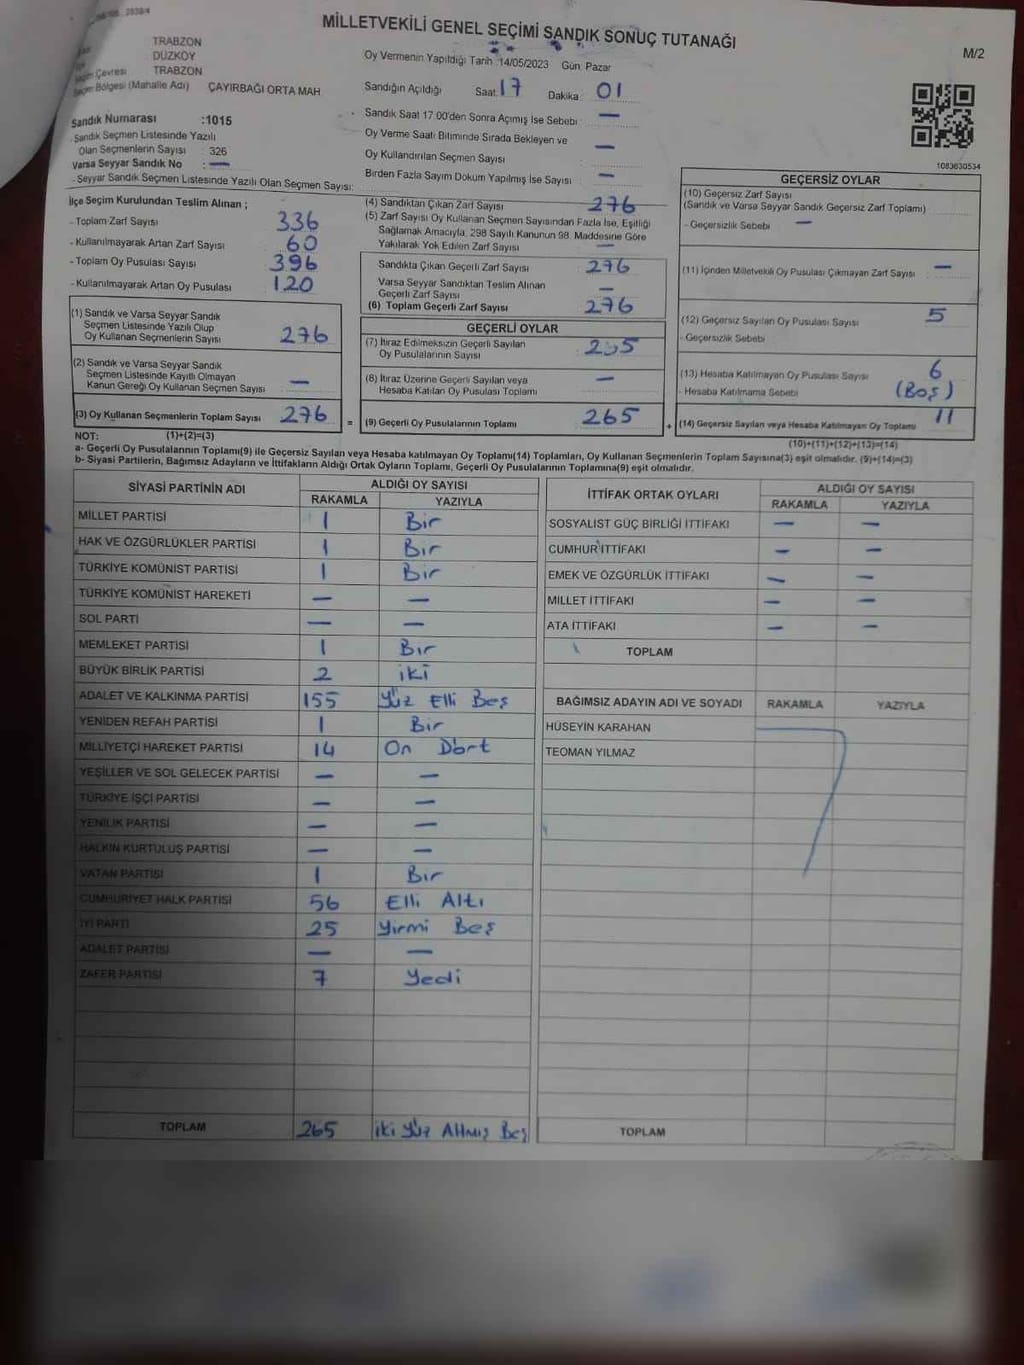 MİLLETVEKİLİ GENEL SEÇİMİ SANDIK SONUÇ TUTANAĞI
M/2
TRABZON
DÜZKÖY
Seçim Çevresi TRABZON
Seçim Bölgesi (Mahalle Adı) ÇAYIRBAĞI ORTA MAH
Sandık Numarası :1015
Sandık Seçmen Listesinde Yazılı
Olan Seçmenlerin Sayısı : 326
Varsa Seyyar Sandık No : —
- Seyyar Sandık Seçmen Listesinde Yazılı Olan Seçmen Sayısı:
Oy Vermenin Yapıldığı Tarih :14/05/2023 Gün: Pazar
Sandığın Açıldığı Saat: 17 Dakika: 01
Sandık Saat 17:00'den Sonra Açılmış İse Sebebi : —
Oy Verme Saati Bitiminde Sırada Bekleyen ve
Oy Kullandırılan Seçmen Sayısı : —
Birden Fazla Sayım Döküm Yapılmış İse Sayısı : —
1083630534
İlçe Seçim Kurulundan Teslim Alınan ;
- Toplam Zarf Sayısı : 336
- Kullanılmayarak Artan Zarf Sayısı : 60
- Toplam Oy Pusulası Sayısı : 396
- Kullanılmayarak Artan Oy Pusulası : 120
(1) Sandık ve Varsa Seyyar Sandık
Seçmen Listesinde Yazılı Olup
Oy Kullanan Seçmenlerin Sayısı : 276
(2) Sandık ve Varsa Seyyar Sandık
Seçmen Listesinde Kayıtlı Olmayan
Kanun Gereği Oy Kullanan Seçmen Sayısı : —
(3) Oy Kullanan Seçmenlerin Toplam Sayısı : 276
(1)+(2)=(3)
(4) Sandıktan Çıkan Zarf Sayısı : 276
(5) Zarf Sayısı Oy Kullanan Seçmen Sayısından Fazla İse, Eşitliği
Sağlamak Amacıyla, 298 Sayılı Kanunun 98. Maddesine Göre
Yakılarak Yok Edilen Zarf Sayısı : —
Sandıkta Çıkan Geçerli Zarf Sayısı : 276
Varsa Seyyar Sandıktan Teslim Alınan
Geçerli Zarf Sayısı : —
(6) Toplam Geçerli Zarf Sayısı : 276
GEÇERLİ OYLAR
(7) İtiraz Edilmeksizin Geçerli Sayılan
Oy Pusulalarının Sayısı :
(8) İtiraz Üzerine Geçerli Sayılan veya
Hesaba Katılan Oy Pusulası Toplamı : —
= (9) Geçerli Oy Pusulalarının Toplamı : 265
GEÇERSİZ OYLAR
(10) Geçersiz Zarf Sayısı
(Sandık ve Varsa Seyyar Sandık Geçersiz Zarf Toplamı) :
- Geçersizlik Sebebi : —
(11) İçinden Milletvekili Oy Pusulası Çıkmayan Zarf Sayısı : —
(12) Geçersiz Sayılan Oy Pusulası Sayısı : 5
- Geçersizlik Sebebi :
(13) Hesaba Katılmayan Oy Pusulası Sayısı : 6
- Hesaba Katılmama Sebebi : (Boş)
+ (14) Geçersiz Sayılan veya Hesaba Katılmayan Oy Toplamı : 11
(10)+(11)+(12)+(13)=(14)
NOT:
a- Geçerli Oy Pusulalarının Toplamı(9) ile Geçersiz Sayılan veya Hesaba katılmayan Oy Toplamı(14) Toplamları, Oy Kullanan Seçmenlerin Toplam Sayısına(3) eşit olmalıdır. (9)+(14)=(3)
b- Siyasi Partilerin, Bağımsız Adayların ve İttifakların Aldığı Ortak Oyların Toplamı, Geçerli Oy Pusulalarının Toplamına(9) eşit olmalıdır.
SİYASİ PARTİNİN ADI ALDIĞI OY SAYISI
RAKAMLA YAZIYLA
MİLLET PARTİSİ 1 Bir
HAK VE ÖZGÜRLÜKLER PARTİSİ 1 Bir
TÜRKİYE KOMÜNİST PARTİSİ 1 Bir
TÜRKİYE KOMÜNİST HAREKETİ — —
SOL PARTİ — —
MEMLEKET PARTİSİ 1 Bir
BÜYÜK BİRLİK PARTİSİ 2 iki
ADALET VE KALKINMA PARTİSİ 155 Yüz Elli Beş
YENİDEN REFAH PARTİSİ 1 Bir
MİLLİYETÇİ HAREKET PARTİSİ 14 On Dört
YEŞİLLER VE SOL GELECEK PARTİSİ — —
TÜRKİYE İŞÇİ PARTİSİ — —
YENİLİK PARTİSİ — —
HALKIN KURTULUŞ PARTİSİ — —
VATAN PARTİSİ 1 Bir
CUMHURİYET HALK PARTİSİ 56 Elli Altı
İYİ PARTİ 25 Yirmi Beş
ADALET PARTİSİ — —
ZAFER PARTİSİ 7 Yedi
TOPLAM 265 iki Yüz Altmış Beş
İTTİFAK ORTAK OYLARI ALDIĞI OY SAYISI
RAKAMLA YAZIYLA
SOSYALİST GÜÇ BİRLİĞİ İTTİFAKI — —
CUMHUR İTTİFAKI — —
EMEK VE ÖZGÜRLÜK İTTİFAKI — —
MİLLET İTTİFAKI — —
ATA İTTİFAKI — —
TOPLAM
BAĞIMSIZ ADAYIN ADI VE SOYADI RAKAMLA YAZIYLA
HÜSEYİN KARAHAN
TEOMAN YILMAZ
TOPLAM